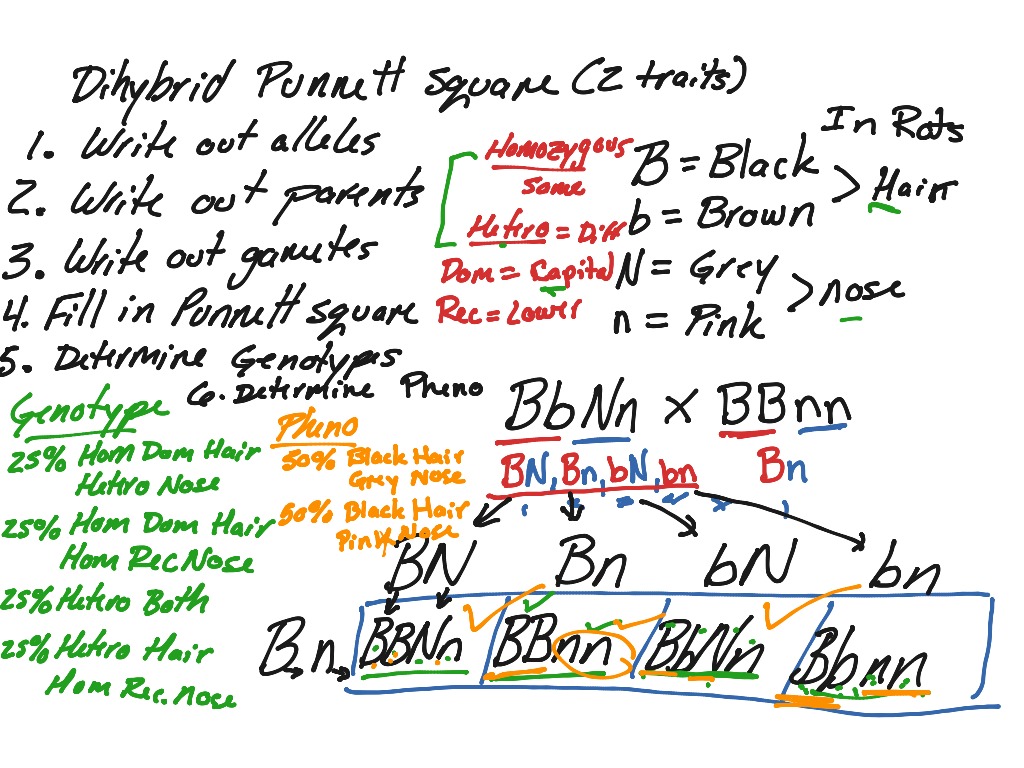 Dihybrid Punnett Square (2 traits)
1. Write out alleles
2. Write out parents
3. Write out gametes
4. Fill in Punnett square
5. Determine Genotypes
6. Determine Pheno
Homozygous
Same
Hetro = Diff
Dom = Capital
Rec = Lower
In Rats
B = Black
b = Brown
> Hair
N = Grey
n = Pink
> nose
BbNn x BBnn
BN, Bn, bN, bn
Bn
Genotype
25% Hom Dom Hair
Hetro Nose
25% Hom Dom Hair
Hom Rec Nose
25% Hetro Both
25% Hetro Hair
Hom Rec. Nose
Pheno
50% Black Hair
Grey Nose
50% Black Hair
Pink Nose
BN Bn bN bn
Bn BBNn BBnn BbNn Bbnn